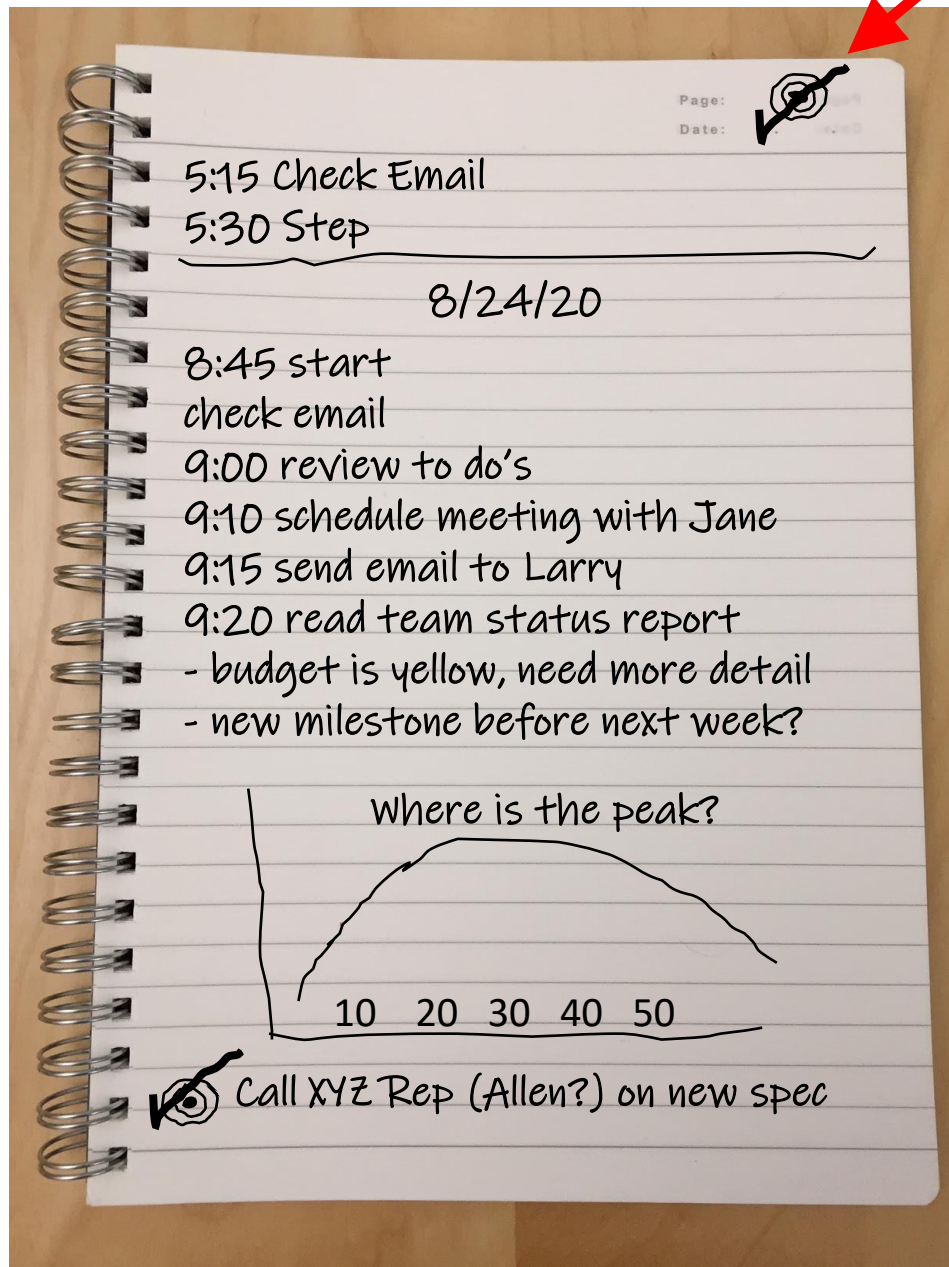 Page:
Date:
5:15 Check Email
5:30 Step
8/24/20
8:45 start
check email
9:00 review to do's
9:10 schedule meeting with Jane
9:15 send email to Larry
9:20 read team status report
- budget is yellow, need more detail
- new milestone before next week?
Where is the peak?
10 20 30 40 50
Call XYZ Rep (Allen?) on new spec